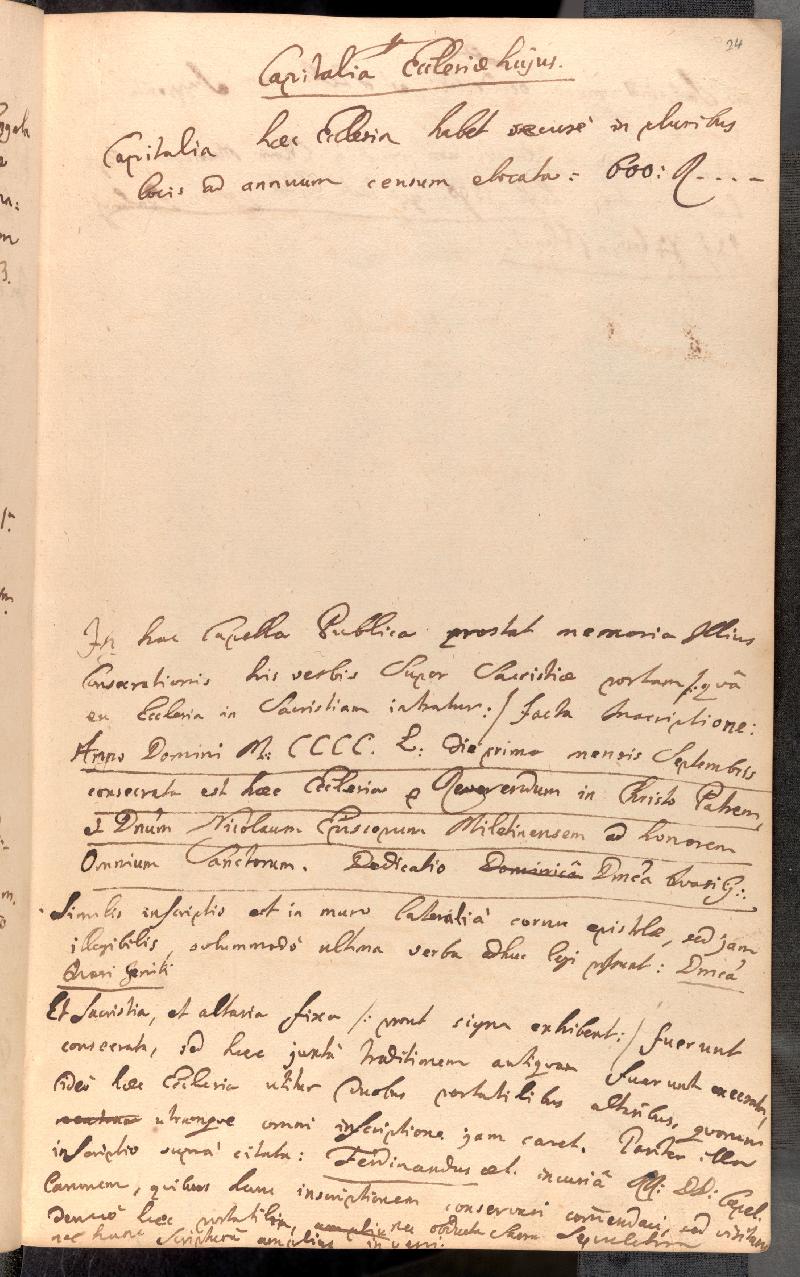 24
Capitalia Ecclesiæ hujus.
Capitalia hæc Ecclesia habet secure in pluribus
locis ad annuum censum elocata: 600: R----
In hac Capella Publica prostat memoria Illius
Consecrationis his verbis Super Sacristiæ portam /: quâ
ex Ecclesia in Sacristiam intratur: / facta Inscriptione:
Anno Domini M: CCCC. L: die prima mensis Septembris
consecrata est hæc Ecclesia p Reverendum in Christo Patrem,
et Dnum Nicolaum Episcopum Miletinensem ad honorem
Omnium Sanctorum. Dedicatio Dominicâ Dmcâ Quasi G:.
Similis inscriptio est in muro laterali à cornu epistolæ, sed jam
illegibilis, solummodo ultima verba adhuc legi possunt: Dmcâ
Quasi geniti
Et Sacristia, et altaria fixa /: prout signa exhibent: / fuerunt
consecrata, sed hæc juxta traditionem antiquam fuerunt execrata,
ideo hæc Ecclesia utitur duobus portatilibus altaribus, quorum
utrumque omni inscriptione jam caret. Pariter illa
inscriptio supra citata: Ferdinandus et. incuriâ DD: Capel
lanorum, quibus hanc inscriptionem conservari comendavi, sed visitans
denuo hæc portatilia, nec
nec hanc Scripturam amplius inveni.